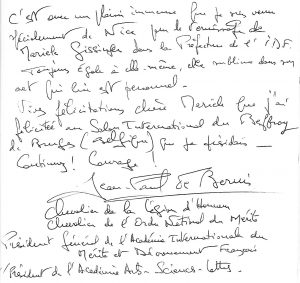 C'est avec un plaisir immense que je suis venu
spécialement de Nice pour le
Marick Gissinger dans la Préfecture de l'IDF.
Toujours égale à elle-même, elle sublime dans son
art qui lui est personnel.
Vives félicitations chère Marick que j'ai
félicitée au Salon International du Beffroy
de Bruges (Belgique) que je présidais _
Continuez ! Courage !
Jean-Paul de Bernis
Chevalier de la Légion d'Honneur
Chevalier de l'Ordre National du Mérite
Président Général de l'Académie Internationale du
Mérite et Dévouement Français
V/Président de l'Académie Arts-Sciences-Lettres.